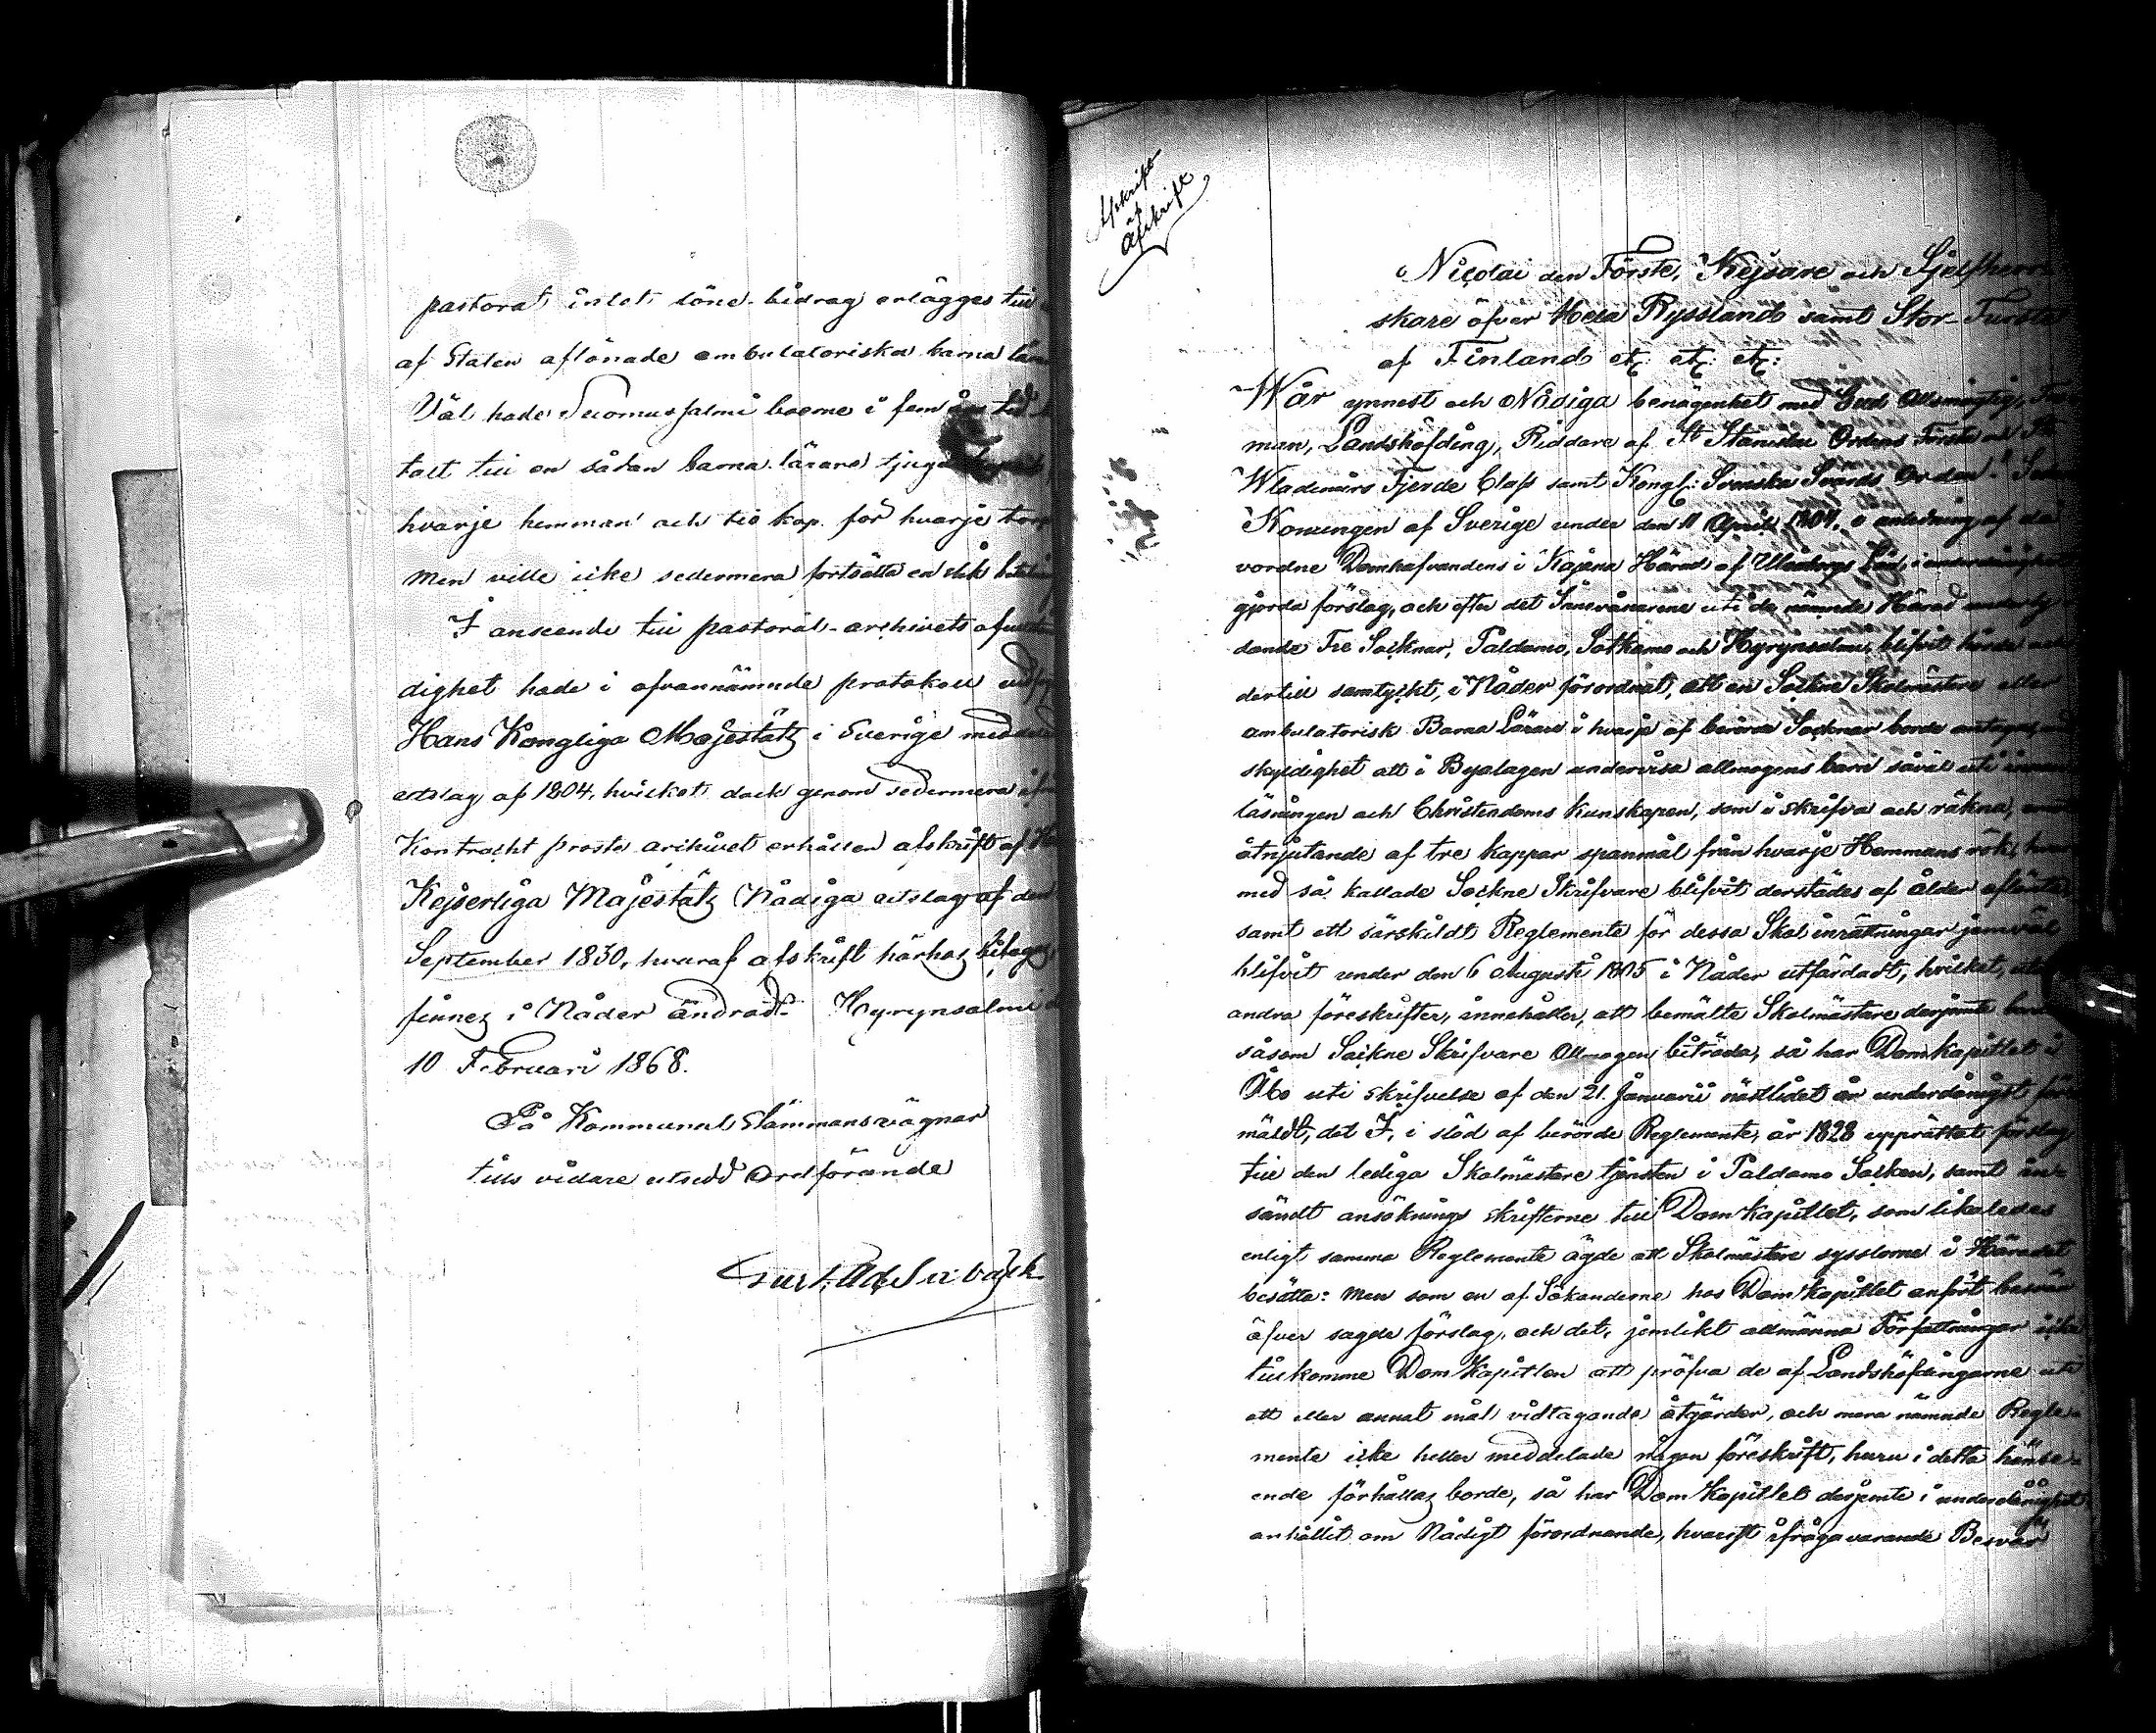 pastorat intet löne-bidrag erlägges till
af Staten aflönade ambulatoriska barna
Väl hade Suomussalmi boerne i fem
talt till en sådan barna-lärare tjugu
hvarje hemman och tio kop. för hvarje torp
men ville icke sedermera fortsätta en slik
I anseende till pastorats-archivets
dighet hade i ofvannämnde protokoll
Hans Kongliga Majestäts i Sverige
utslag af 1804, hvilket dock genom sedermera
Kontrackt prosts archivet erhållen afskrift af
Kejserliga Majestäts Nådiga utslag af den
September 1830, hvaraf afskrift härhos bilages,
finnes i Nåder ändradt. Hyrynsalmi
10 Februari 1868.
På Kommunal Stämmans vägnar
tills vidare utsedd Ordförande
Afskrift
af
Afskrift
Nicolai den Förste, Kejsare och Sjelfherr-
skare öfver Hela Ryssland samt Stor-Furste
af Finland etc: etc: etc:
Wår ynnest och Nådiga benägenhet med Gud Allsmägtig,
man, Landshöfding, Riddare af St Stanislai Ordens Första och St
Wladimirs Fjerde Class samt Kongl: Svenska Svärds Orden.
Konungen af Sverige under den 11 April 1804, i anledning af då
vordne Domhafvandens i Kajana Härad af Uleåborgs Län, i
gjorda förslag, och efter det Innevånarene uti då nämnde Härad
dande Tre Socknar, Paldamo, Sotkamo och Hyrynsalmi, blifvit hörde och
dertill samtyckt, i Nåder förordnat, att en Sockne Skolmästare eller
ambulatorisk Barna Lärare i hvarje af berörde Socknar borde antagas, med
skyldighet att i Byalagen undervisa allmogens barn såväl uti
läsningen och Christendoms kunskapen, som i skrifva och räkna,
åtnjutande af tre kappar spanmål från hvarje Hemmans rök,
med så kallade Sockne Skrifvare blifvit derstädes af ålder aflönte
samt ett särskildt Reglemente för dessa Skol inrättningar jemväl
blifvit under den 6 Augusti 1805 i Nåder utfärdadt, hvilket,
andra föreskrifter, innehåller, att bemälte Skolmästare derjemte
såsom Sockne Skrifvare Allmogen biträda, så har Domkapitlet i
Åbo uti skrifvelse af den 21. Januarii nästlidet år underdånigst
mäldt, det I, i stöd af berörde Reglemente, år 1828 upprättat förslag
till den lediga Skolmästare tjensten i Paldamo Socken, samt än-
sändt ansöknings skrifterne till Domkapitlet, som likaledes
enligt samma Reglemente ägde att Skolmästare sysslorne i Häradet
besätta: Men som en af Sökanderne hos Domkapitlet anfört besvär
öfver sagde förslag, och det, jemlikt allmänna Författningar icke
tillkomme DomKapitlen att pröfva de af Landshöfdingarne uti
ett eller annat mål vidtagande åtgärder, och mera nämnde Regle-
mente icke heller meddelade någon föreskrift, huru i detta hänse-
ende förhållas borde, så har DomKapitlet derjemte i underdånighet
anhållit om Nådigt förordnande, hvarift ifrågavarande Besvär